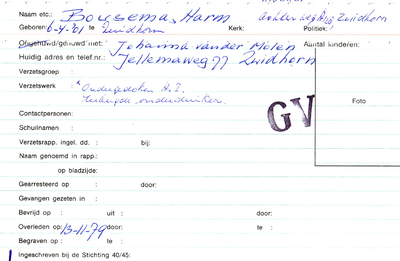 Naam etc.: Bousema, Harm
Geboren: 6-4-'01 te Zuidhorn Kerk: Politiek:
Ongehuwd/gehuwd met: Johanna van der Molen Aantal kinderen:
Huidig adres en telef.nr.: Jellemaweg 77 Zuidhorn
Verzetsgroep :
Verzetswerk : Ondergedoken A.I.
onderduiker.
Contactpersonen:
Foto
Schuilnamen :
GV
Verzetsrapp. ingel. dd. : bij:
Naam genoemd in rapp.:
op bladzijde:
Gearresteerd op : door:
Gevangen gezeten in :
Bevrijd op : uit : door:
Overleden op: 13-11-79 door: te :
Begraven op : te :
Ingeschreven bij de Stichting 40/45: